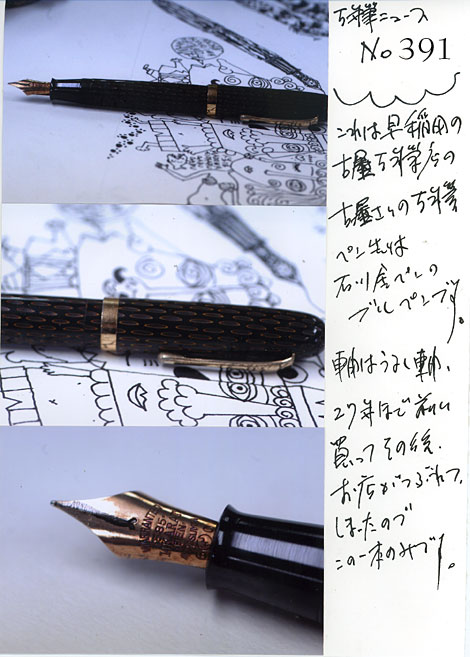 万年筆ニュース
No 391
これは早稲田の
古屋万年筆店の
古屋さんの万年筆
ペン先は
石川金ペンの
ブルペンです。
軸はうるし軸、
27年ほど前に
買ってその後、
お店がつぶれて、
しまったので
この一本のみです。
WARRANTED